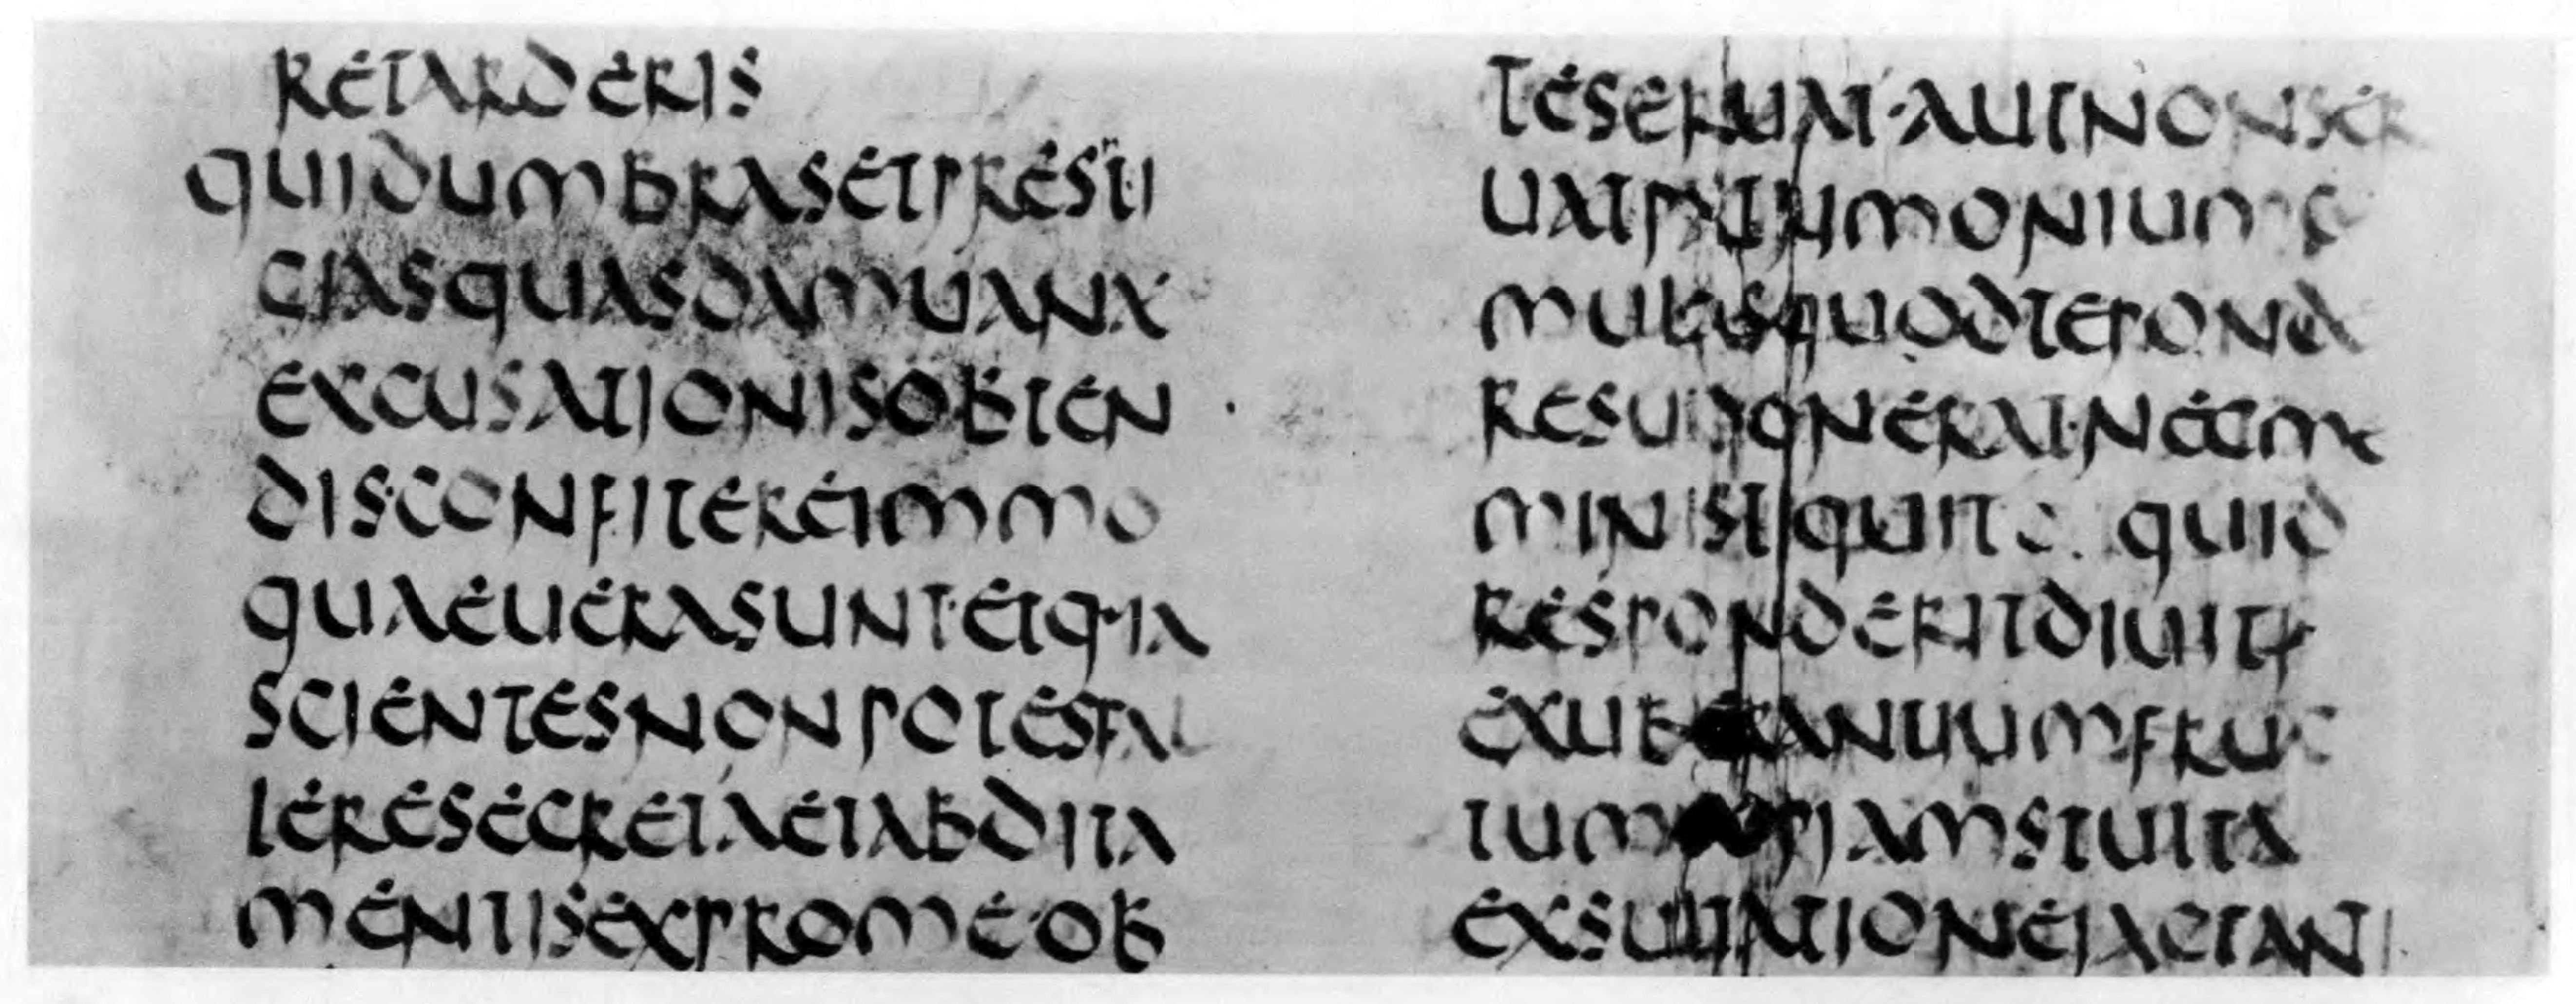 RETARDERIS
QUIDUMBRASETPRESTI
GIASQUASDAMUANA
EXCUSATIONISOBTEN
DIS·CONFITEREIMMO
QUAEUERASUNT·ETQ·IA
SCIENTESNONPOTESFAL
LERESECRETAETABDITA
MENTISEXPROME·OB
TESERUAT·AUTNONSER
UATPATRIMONIUM
MULASQUODTEPOND
RESUOONERAT·NECME
MINISTI QUID
RESPONDERITDIUITI
EXUBERANTIUMFRUC
TUM COPIAMSTULTA
EXSULTATIONEIACTANTI